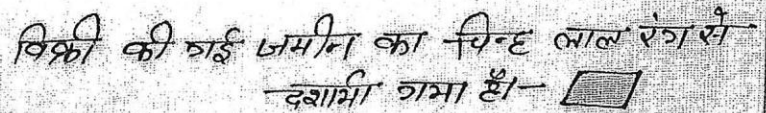 विक्री की गई जमीन का चिन्ह लाल रंग से
दर्शाया गया है।-